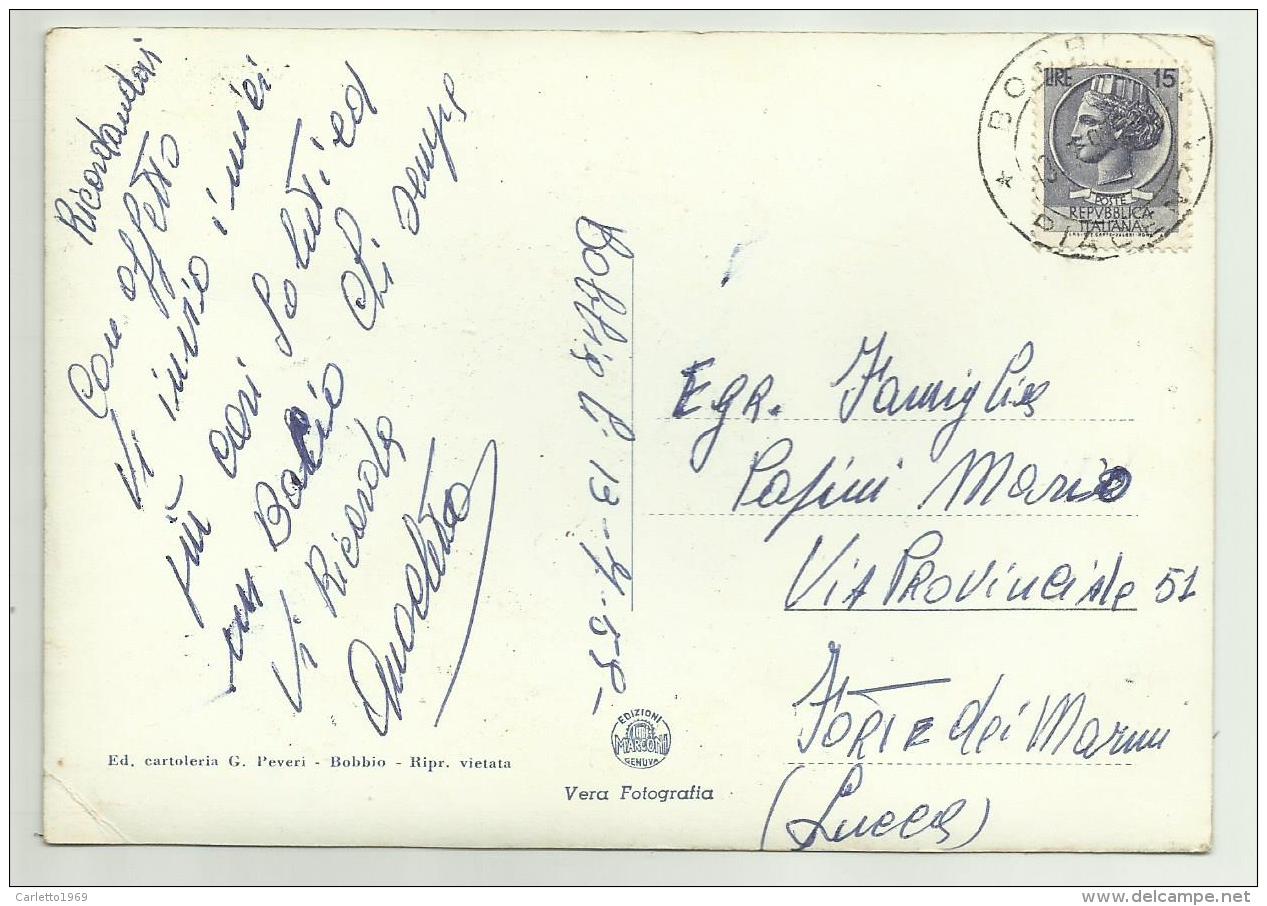 Ricordandovi
Con affetto
Vi invio i miei
più cari Saluti ed
un Bacio Chi sempre
Vi Ricorda
Anacleto
Bobbio li 13-4-58-
BOBBIO
PIACENZA
LIRE 15
POSTE
REPVBBLICA
ITALIANA
Egr. Famiglia
Papini Mario
Via Provinciale 51
Forte dei Marmi
(Lucca)
EDIZIONI
MARCONI
GENOVA
Ed. cartoleria G. Peveri - Bobbio - Ripr. vietata
Vera Fotografia
Carletto1969
delcampe.net